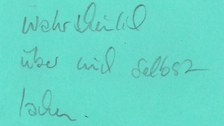 wahrscheinlich
über mich selbst
lachen.